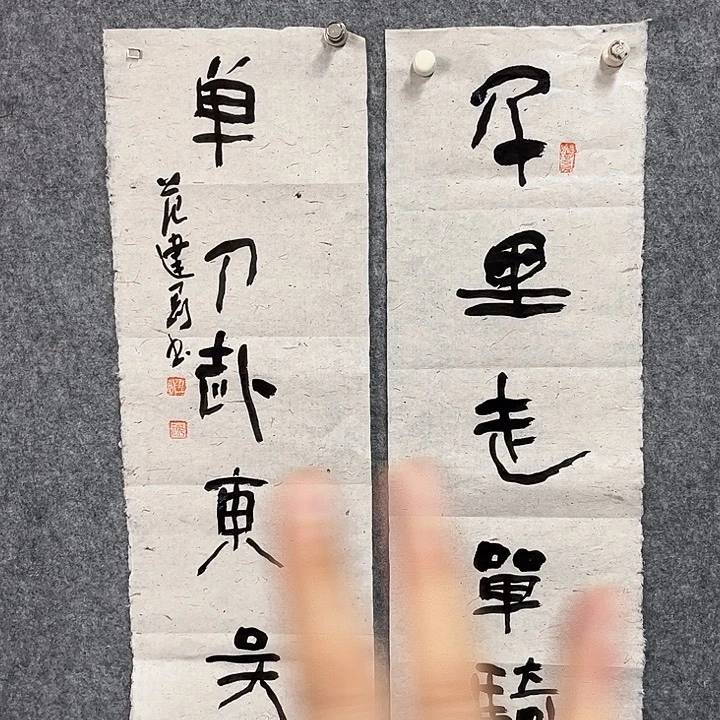 里走單騎
单刀赴東吴
范建书